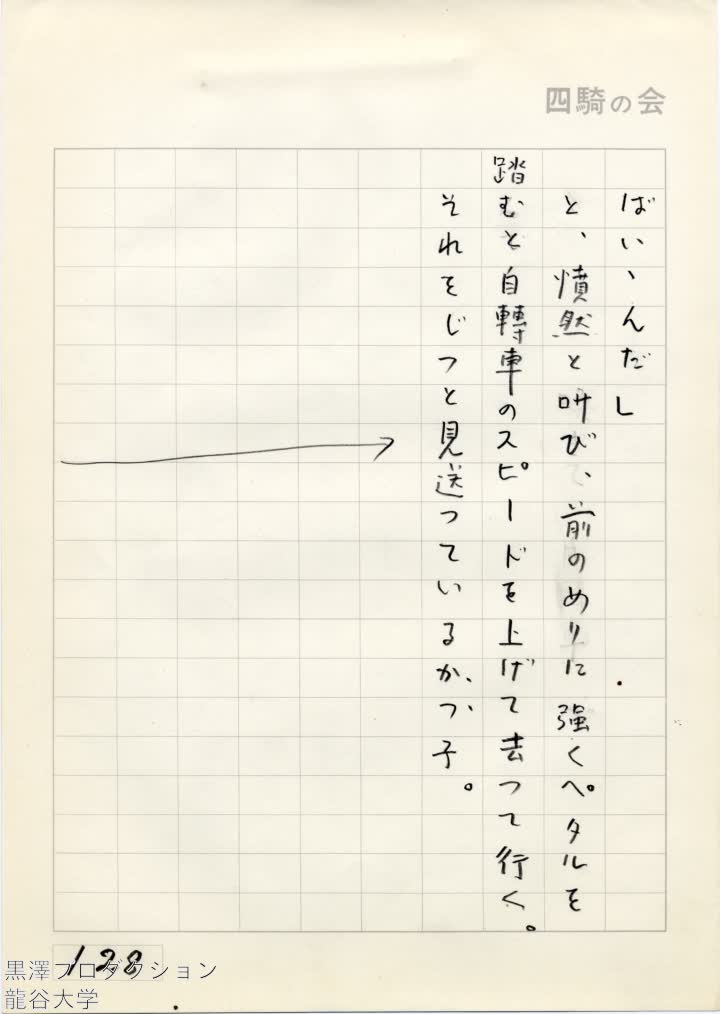 四騎の会
ばいゝんだ」
と、憤然と叫び、前のめりに強くペタルを
踏むと自轉車のスピードを上げて去つて行く。
それをじつと見送つているかつ子。
128
黒澤プロダクション
龍谷大学